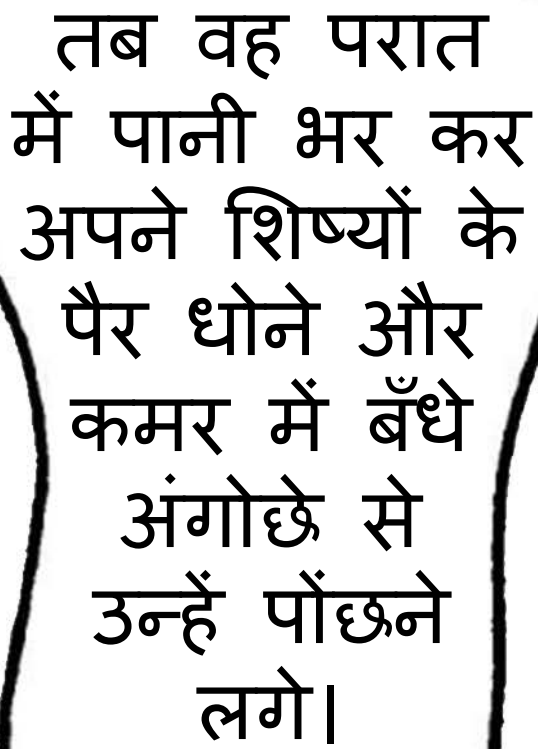 तब वह परात
में पानी भर कर
अपने शिष्यों के
पैर धोने और
कमर में बँधे
अंगोछे से
उन्हें पोंछने
लगे।